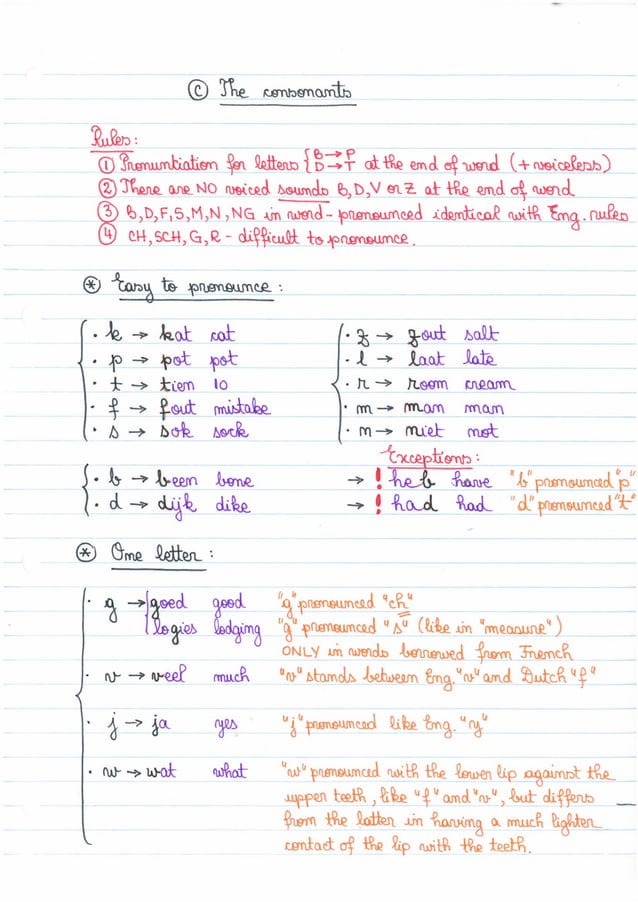 Ⓒ The consonants
Rules:
① Pronuntiation for letters { B → P
D → T at the end of word (+ voiceless)
② There are NO voiced sounds B, D, V or Z at the end of word
③ B, D, F, S, M, N, NG in word - pronounced identical with Eng. rules
④ CH, SCH, G, R - difficult to pronounce.
⊛ Easy to pronounce :
· k → kat cat
· p → pot pot
· t → tien 10
· f → fout mistake
· s → sok sock
· z → zout salt
· l → laat late
· r → room cream
· m → man man
· n → niet not
Exceptions :
· b → been bone → ! heb have "b" pronounced "p"
· d → dijk dike → ! had had "d" pronounced "t"
⊛ One letter :
· g → goed good "g" pronounced "ch"
logies lodging "g" pronounced "s" (like in "measure")
ONLY in words borrowed from French
· v → veel much "v" stands between Eng. "v" and Dutch "f"
· j → ja yes "j" pronounced like Eng. "y"
· w → wat what "w" pronounced with the lower lip against the
upper teeth, like "f" and "v", but differs
from the latter in having a much lighter
contact of the lip with the teeth.